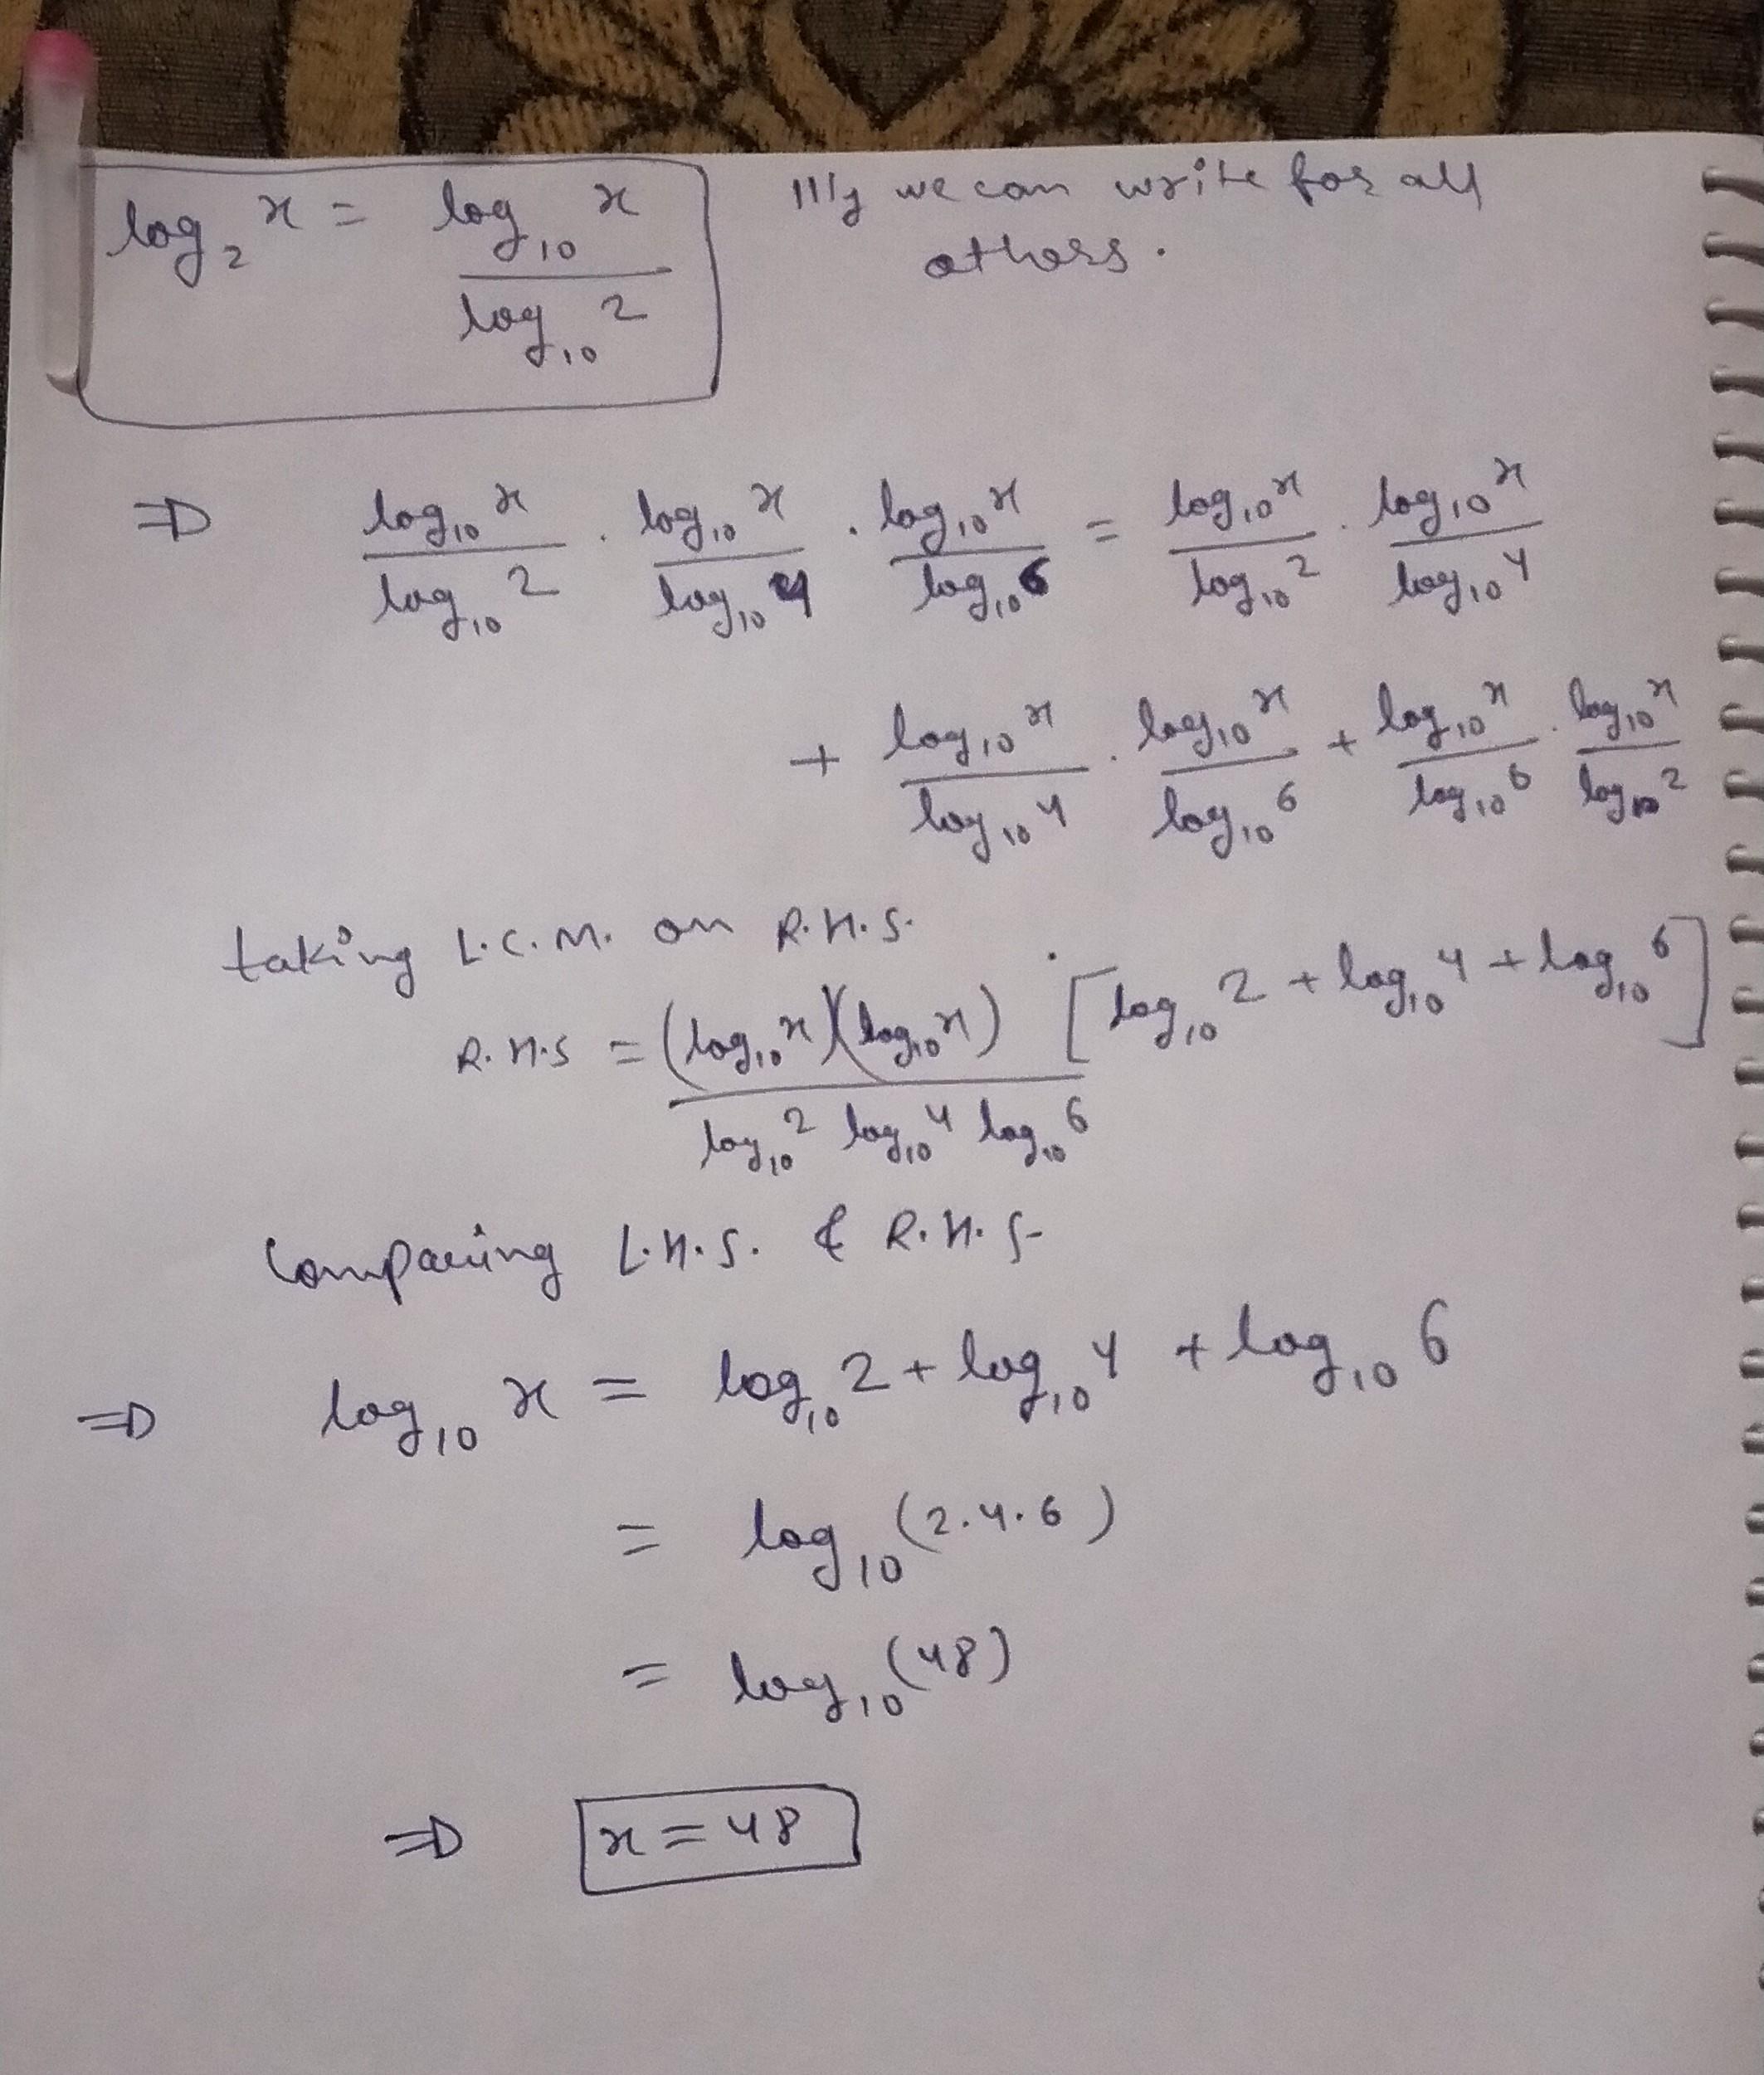 log₂ x = log₁₀ x / log₁₀ 2
111ly we can write for all
others.
⇒ log₁₀ x / log₁₀ 2 . log₁₀ x / log₁₀ 4 . log₁₀ x / log₁₀ 6 = log₁₀ x / log₁₀ 2 . log₁₀ x / log₁₀ 4
+ log₁₀ x / log₁₀ 4 . log₁₀ x / log₁₀ 6 + log₁₀ x / log₁₀ 6 . log₁₀ x / log₁₀ 2
taking L.C.M. on R.H.S.
R.H.S = (log₁₀ x)(log₁₀ x) / log₁₀ 2 log₁₀ 4 log₁₀ 6 [log₁₀ 2 + log₁₀ 4 + log₁₀ 6]
Comparing L.H.S. & R.H.S-
⇒ log₁₀ x = log₁₀ 2 + log₁₀ 4 + log₁₀ 6
= log₁₀ (2.4.6)
= log₁₀ (48)
⇒ x = 48